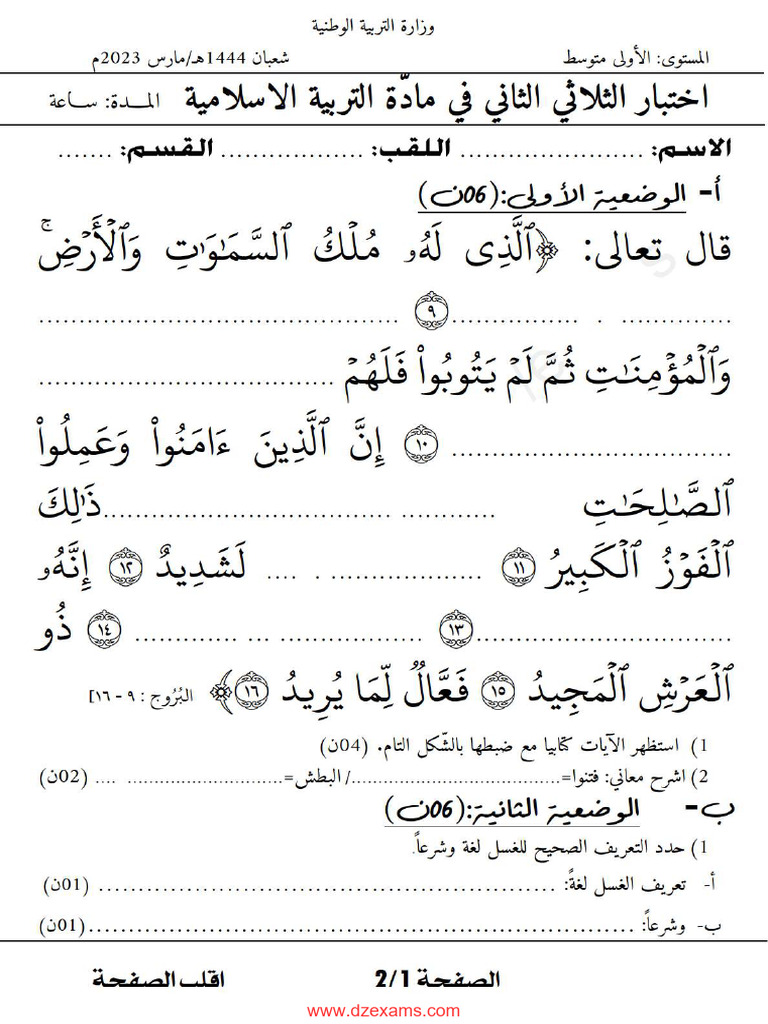 وزارة التربية الوطنية
المستوى: الأولى متوسط شعبان 1444هـ/مارس 2023م
اختبار الثلاثي الثاني في مادّة التربية الاسلامية المـدة: ساعة
الاسم: ....................... اللقب: .................. القسم: .......
أ- الوضعية الأولى:(06ن)
قال تعالى: ﴿ٱلَّذِى لَهُۥ مُلۡكُ ٱلسَّمَٰوَٰتِ وَٱلۡأَرۡضِۚ
.............. . ................ ٩ .............................................
وَٱلۡمُؤۡمِنَٰتِ ثُمَّ لَمۡ يَتُوبُواْ فَلَهُمۡ .....................................
................................... ١٠ إِنَّ ٱلَّذِينَ ءَامَنُواْ وَعَمِلُواْ
ٱلصَّٰلِحَٰتِ ............ ....................................ذَٰلِكَ
ٱلۡفَوۡزُ ٱلۡكَبِيرُ ١١ ................... . .... لَشَدِيدٌ ١٢ إِنَّهُۥ
................................١٣ .................. ... ............. ١٤ ذُو
ٱلۡعَرۡشِ ٱلۡمَجِيدُ ١٥ فَعَّالٞ لِّمَا يُرِيدُ ١٦﴾ البُرُوج : ٩ - ١٦]
1) استظهر الآيات كتابيا مع ضبطها بالشّكل التام. (04ن)
2) اشرح معاني: فتنوا=...................................../ البطش=............................ .... (02ن)
ب- الوضعية الثانية:(06ن)
1) حدد التعريف الصحيح للغسل لغة وشرعاً.
أ- تعريف الغسل لغةً: ......................................................... (01ن)
ب- وشرعاً: .....................................................................(01ن)
الصفحة 2/1 اقلب الصفحة
www.dzexams.com